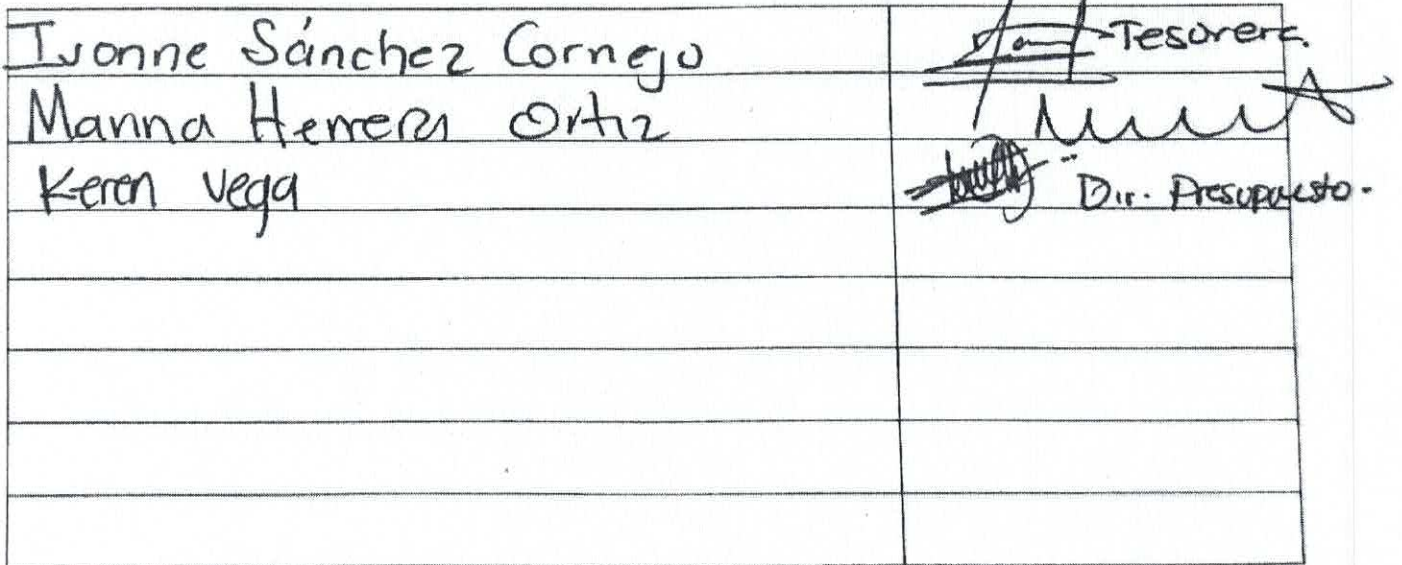 Ivonne Sánchez Cornejo Tesorera.
Marina Herrera Ortiz
Keren Vega Dir. Presupuesto.